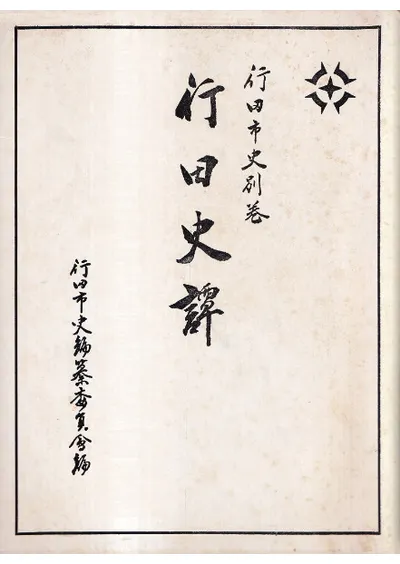 行田市史別巻
行田史譚
行田市史編纂委員會編